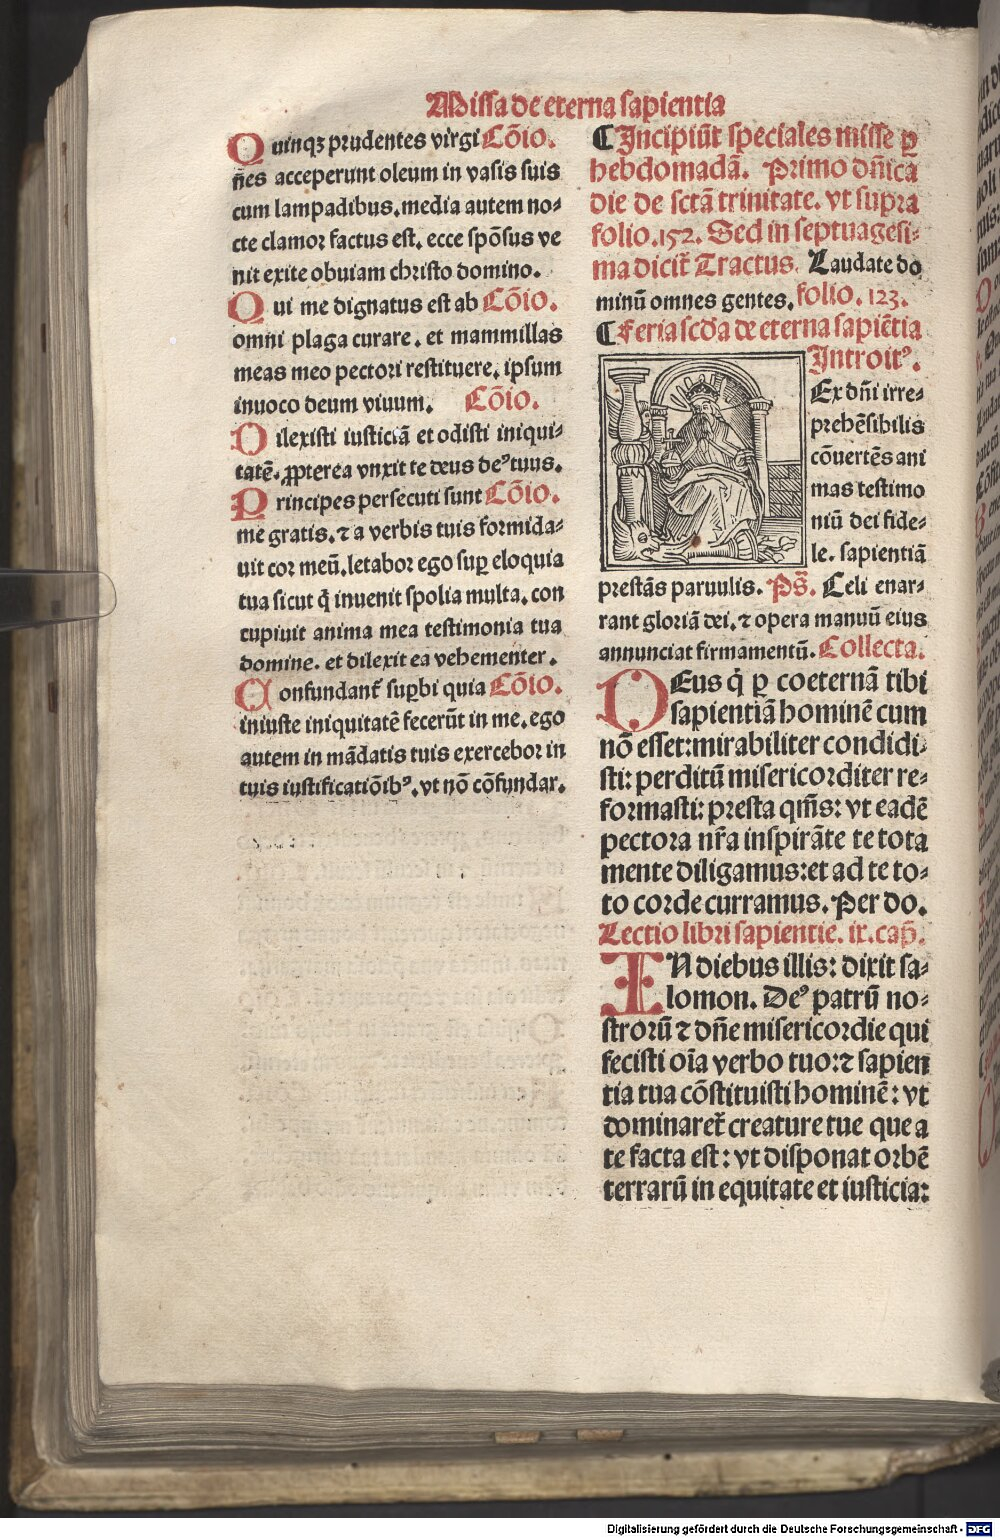 Missa de eterna sapientia
Quinqꝫ prudentes virgi Cōio.
n̄es acceperunt oleum in vasis suis
cum lampadibus. media autem no⸗
cte clamor factus est. ecce spōsus ve
nit exite obuiam christo domino.
Qui me dignatus est ab Cōio.
omni plaga curare. et mammillas
meas meo pectori restituere. ipsum
inuoco deum viuum. Cōio.
Dilexisti iusticiā et odisti iniqui⸗
tatē. ꝓpterea vnxit te deus deꝰ tuus.
Principes persecuti sunt Cōio.
me gratis. ⁊ a verbis tuis formida⸗
uit cor meū. letabor ego suꝑ eloquia
tua sicut q̇ inuenit spolia multa. con
cupiuit anima mea testimonia tua
domine. et dilexit ea vehementer.
Confundant᷑ suꝑbi quia Cōio.
iniuste iniquitatē fecerūt in me. ego
autem in mādatis tuis exercebor in
tuis iustificatiōibꝰ. vt nō cōfundar.
¶ Incipiūt speciales misse ꝑ
hebdomadā. Primo dn̄ica
die de sctā trinitate. vt supra
folio. 152. Sed in septuagesi⸗
ma dicit᷑ Tractus. Laudate do
minū omnes gentes. folio. 123.
¶ Feria scda de eterna sapiētia
Introitꝰ.
Lex dn̄i irre⸗
prehēsibilis
cōuertēs ani
mas testimo
niū dei fide⸗
le. sapientiā
prestās paruulis. Ps̄. Celi enar⸗
rant gloriā dei. ⁊ opera manuū eius
annunciat firmamentū. Collecta.
DEus q̇ ꝑ coeternā tibi
sapientiā hominē cum
nō esset: mirabiliter condidi⸗
sti: perditū misericorditer re⸗
formasti: presta qm̄s: vt eadē
pectora nr̄a inspirāte te tota
mente diligamus: et ad te to⸗
to corde curramus. Per do.
Lectio libri sapientie. ix. cap̄.
IN diebus illis: dixit sa⸗
lomon. Deꝰ patrū no⸗
strorū ⁊ dn̄e misericordie qui
fecisti oīa verbo tuo: ⁊ sapien
tia tua cōstituisti hominē: vt
dominaret᷑ creature tue que a
te facta est: vt disponat orbē
terrarū in equitate et iusticia:
Digitalisierung gefördert durch die Deutsche Forschungsgemeinschaft - DFG